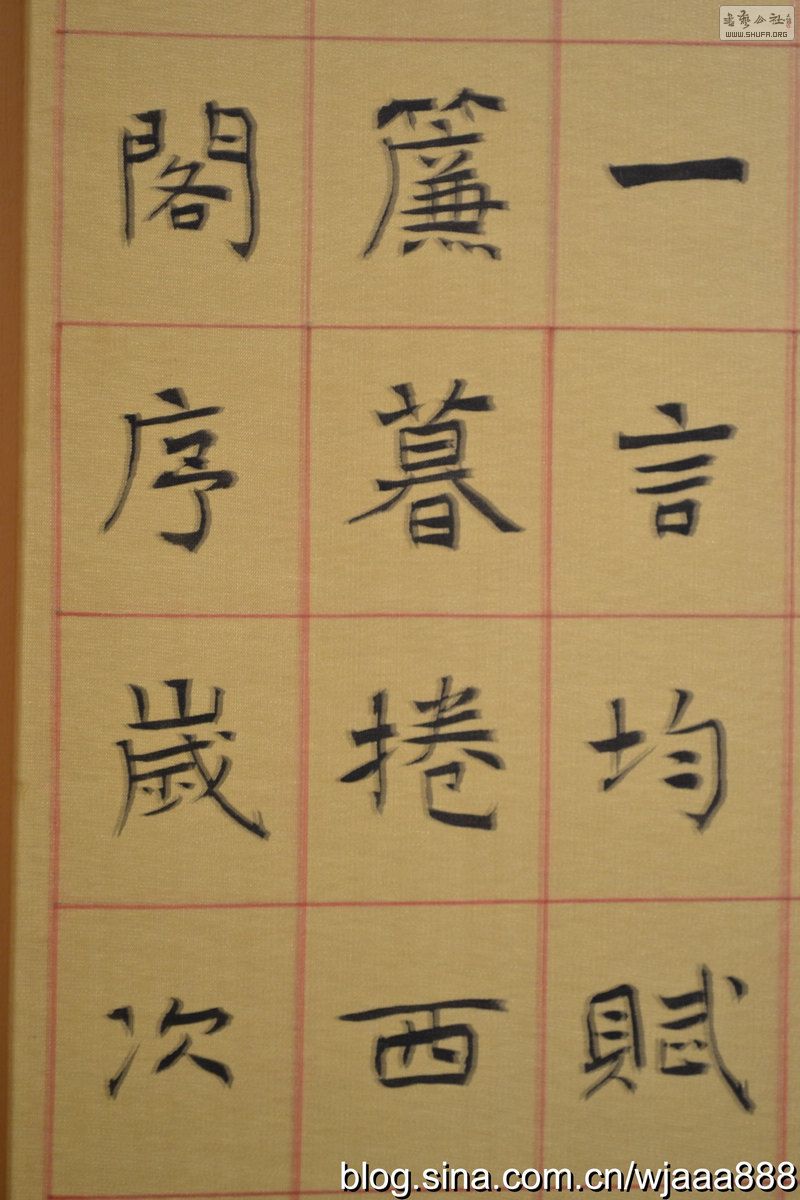 一言均賦
簾暮捲西
閣序歲次
書藝公社
WWW.SHUFA.ORG
blog.sina.com.cn/wjaaa888